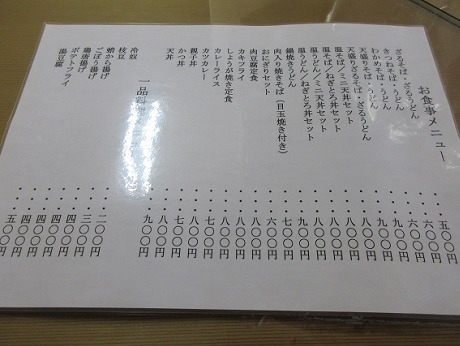 お食事メニュー
ざるそば・ざるうどん・・・・五〇〇円
きつねそば・うどん・・・・六〇〇円
わかめそば・うどん・・・・六〇〇円
天盛りそば・うどん・・・・九〇〇円
天盛りざるそば・うどん・・・・九〇〇円
温そば／ミニ天丼セット・・・・八〇〇円
温うどん／ミニ天丼セット・・・・八〇〇円
温そば／ねぎとろ丼セット・・・・八〇〇円
温うどん／ねぎとろ丼セット・・・・八〇〇円
鍋焼きうどん・・・・九〇〇円
肉入り焼きそば（目玉焼き付き）・・・・八〇〇円
おにぎりセット・・・・六〇〇円
肉豆腐定食・・・・八〇〇円
カキフライ・・・・八〇〇円
しょうが焼き定食・・・・八〇〇円
カレーライス・・・・七〇〇円
カツカレー・・・・八〇〇円
親子丼・・・・七〇〇円
かつ丼・・・・七〇〇円
天丼・・・・九〇〇円
一品料
冷奴・・・・二〇〇円
枝豆・・・・三〇〇円
蛸から揚げ・・・・四〇〇円
ごぼう揚げ・・・・四〇〇円
鶏唐揚げ・・・・四〇〇円
ポテトフライ・・・・四〇〇円
湯豆腐・・・・五〇〇円